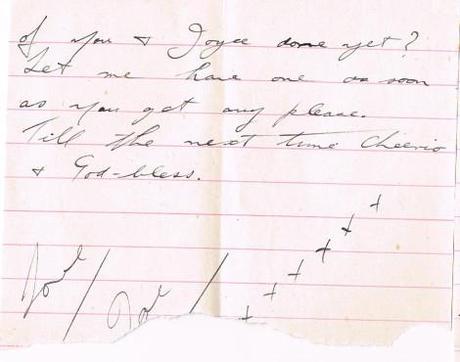 of you & Joyce done yet?
Let me have one as soon
as you get any please.
Till the next time Cheerio
& God-bless.
+ + + + + +